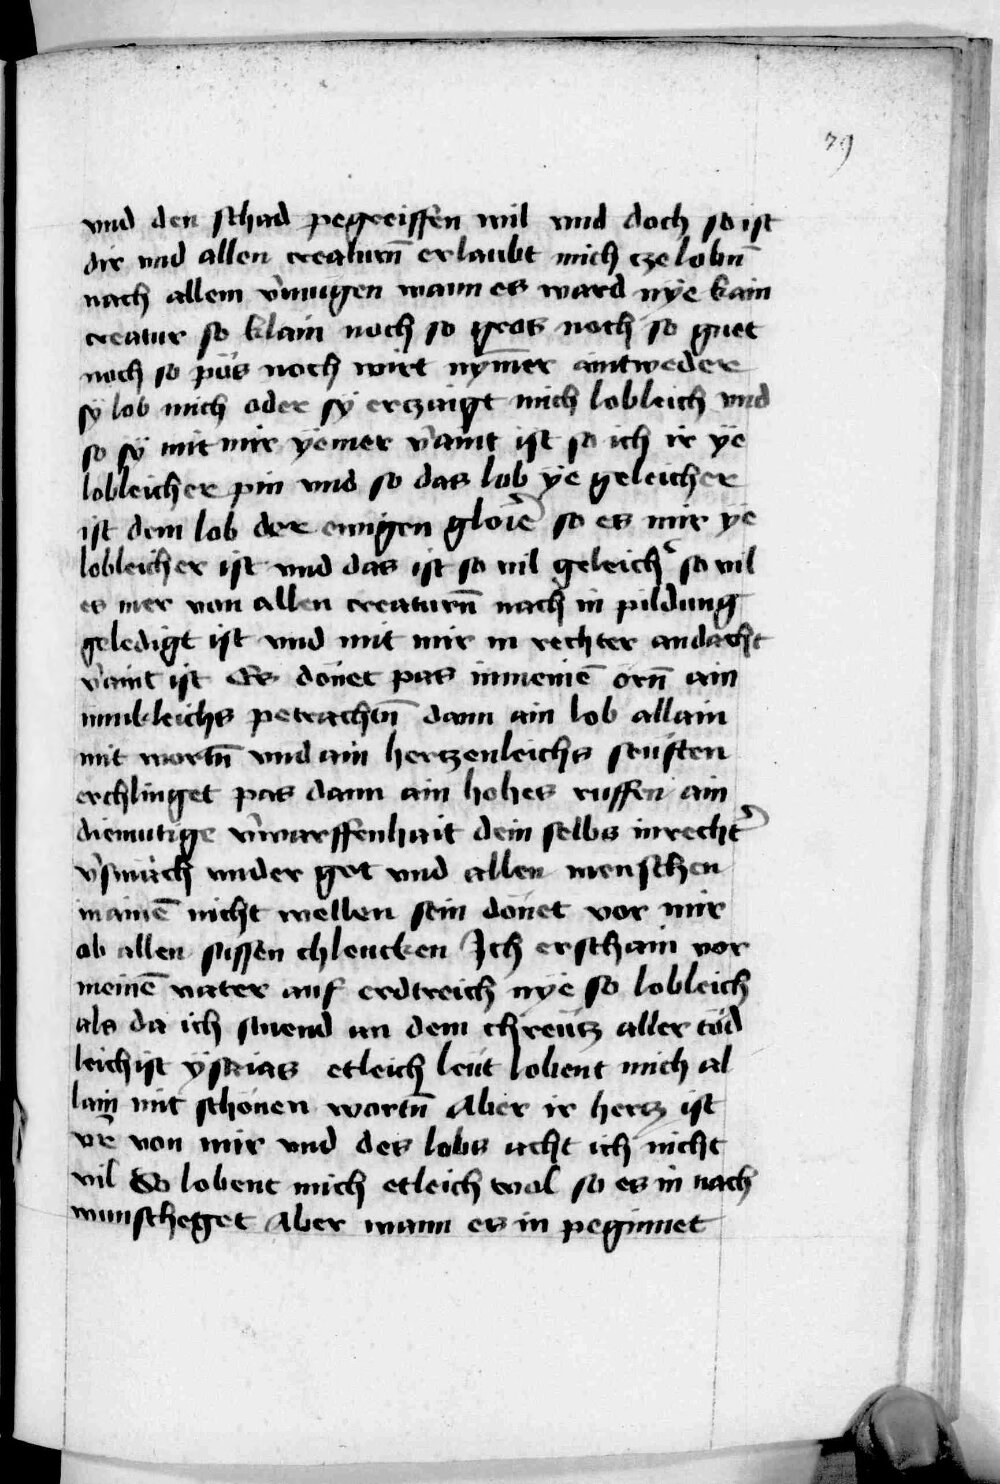 79
vnd den schad pegreiffen wil vnd doch so ist
dir vnd allen creaturn̄ erlaubt mich cze lobn̄
nach allem v̄mugen wann es ward nÿe kain
creatur so klain noch so gros noch so guet
noch so pös noch wirt nÿm̄er aintweder
sÿ lob mich oder sÿ erczaigt mich lobleich vnd
so sÿ mit mir ÿemer v̄aint ist so ich ir ÿe
lobleicher pin vnd so das lob ÿe geleicher
ist dem lob der ewigen glorie so es mir ÿe
lobleicher ist vnd das ist so vil geleicher so vil
es mer von allen creaturn̄ nach in pildung
geledigt ist vnd mit mir in rechter andacht
v̄aint ist Es dönet pas in meinē orn̄ ain
innikleichs petrachtn̄ dann ain lob allain
mit wortn̄ vnd ain hertzenleichs seuften
erchlinget pas dann ain hohes ruffen ain
diemutige v̄warffenhait dein selbs in rechter
v̄smäch vnder got vnd allen menschen
in ainē nicht wellen sein dönet vor mir
ob allen süssen chlencken Ich erschain vor
meinē vater auf erdtreich nÿe so lobleich
als da ich stuend an dem chreütz aller töd
leichist ÿsaias etleich leüt lobent mich al
lain mit schönen wortn̄ Aber ir hertz ist
v̄r̄ von mir vnd des lobs acht ich nicht
vil So lobent mich etleich wol so es in nach
wunsch get Aber wann es in peginnet